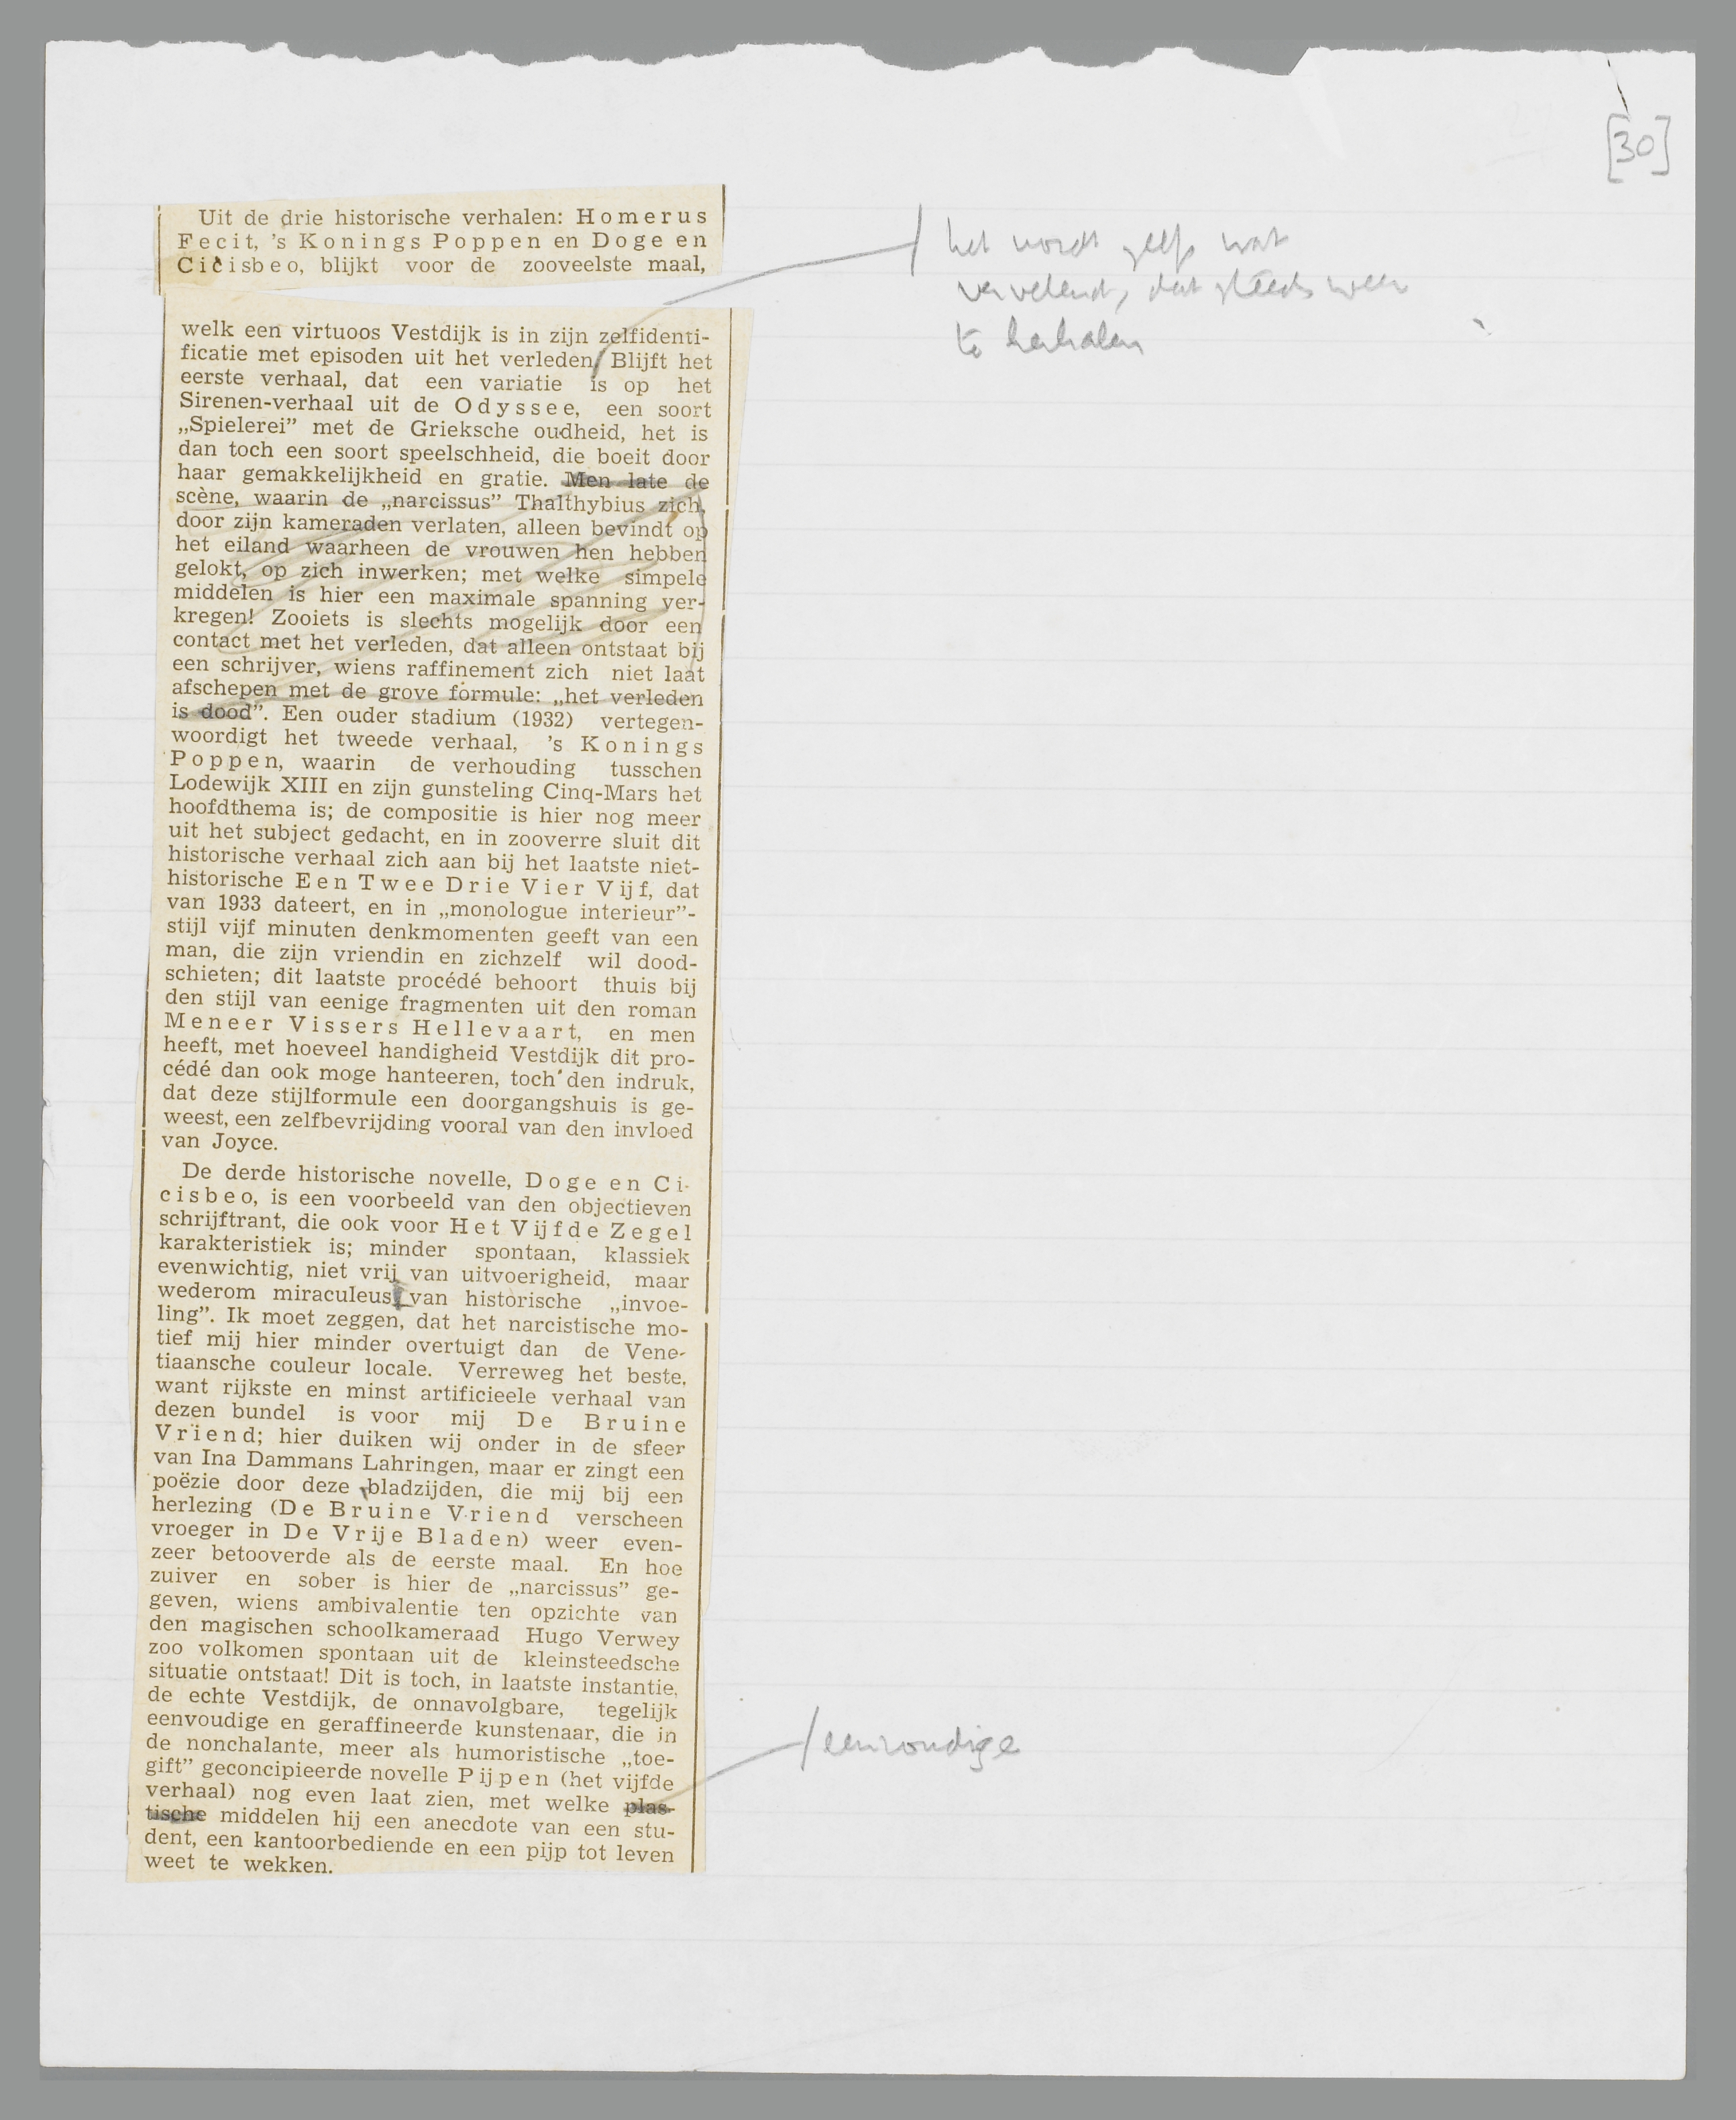 [30]
Uit de drie historische verhalen: Homerus
Fecit, 's Konings Poppen en Doge en
Cicisbeo, blijkt voor de zooveelste maal,
het wordt zelfs wat
vervelend, dat steeds weer
te herhalen
welk een virtuoos Vestdijk is in zijn zelfidenti-
ficatie met episoden uit het verleden. Blijft het
eerste verhaal, dat een variatie is op het
Sirenen-verhaal uit de Odyssee, een soort
„Spielerei” met de Grieksche oudheid, het is
dan toch een soort speelschheid, die boeit door
haar gemakkelijkheid en gratie. Men late de
scène, waarin de „narcissus” Thalthybius zich,
door zijn kameraden verlaten, alleen bevindt op
het eiland waarheen de vrouwen hen hebben
gelokt, op zich inwerken; met welke simpele
middelen is hier een maximale spanning ver-
kregen! Zooiets is slechts mogelijk door een
contact met het verleden, dat alleen ontstaat bij
een schrijver, wiens raffinement zich niet laat
afschepen met de grove formule: „het verleden
is dood”. Een ouder stadium (1932) vertegen-
woordigt het tweede verhaal, 's Konings
Poppen, waarin de verhouding tusschen
Lodewijk XIII en zijn gunsteling Cinq-Mars het
hoofdthema is; de compositie is hier nog meer
uit het subject gedacht, en in zooverre sluit dit
historische verhaal zich aan bij het laatste niet-
historische Een Twee Drie Vier Vijf, dat
van 1933 dateert, en in „monologue interieur”-
stijl vijf minuten denkmomenten geeft van een
man, die zijn vriendin en zichzelf wil dood-
schieten; dit laatste procédé behoort thuis bij
den stijl van eenige fragmenten uit den roman
Meneer Vissers Hellevaart, en men
heeft, met hoeveel handigheid Vestdijk dit pro-
cédé dan ook moge hanteeren, toch den indruk,
dat deze stijlformule een doorgangshuis is ge-
weest, een zelfbevrijding vooral van den invloed
van Joyce.
De derde historische novelle, Doge en Ci-
cisbeo, is een voorbeeld van den objectieven
schrijftrant, die ook voor Het Vijfde Zegel
karakteristiek is; minder spontaan, klassiek
evenwichtig, niet vrij van uitvoerigheid, maar
wederom miraculeus van historische „invoe-
ling”. Ik moet zeggen, dat het narcistische mo-
tief mij hier minder overtuigt dan de Vene-
tiaansche couleur locale. Verreweg het beste,
want rijkste en minst artificieele verhaal van
dezen bundel is voor mij De Bruine
Vriend; hier duiken wij onder in de sfeer
van Ina Dammans Lahringen, maar er zingt een
poëzie door deze bladzijden, die mij bij een
herlezing (De Bruine Vriend verscheen
vroeger in De Vrije Bladen) weer even-
zeer betooverde als de eerste maal. En hoe
zuiver en sober is hier de „narcissus” ge-
geven, wiens ambivalentie ten opzichte van
den magischen schoolkameraad Hugo Verwey
zoo volkomen spontaan uit de kleinsteedsche
situatie ontstaat! Dit is toch, in laatste instantie,
de echte Vestdijk, de onnavolgbare, tegelijk
eenvoudige en geraffineerde kunstenaar, die in
de nonchalante, meer als humoristische „toe-
gift” geconcipieerde novelle Pijpen (het vijfde
verhaal) nog even laat zien, met welke plas-
tische middelen hij een anecdote van een stu-
dent, een kantoorbediende en een pijp tot leven
weet te wekken.
eenvoudige